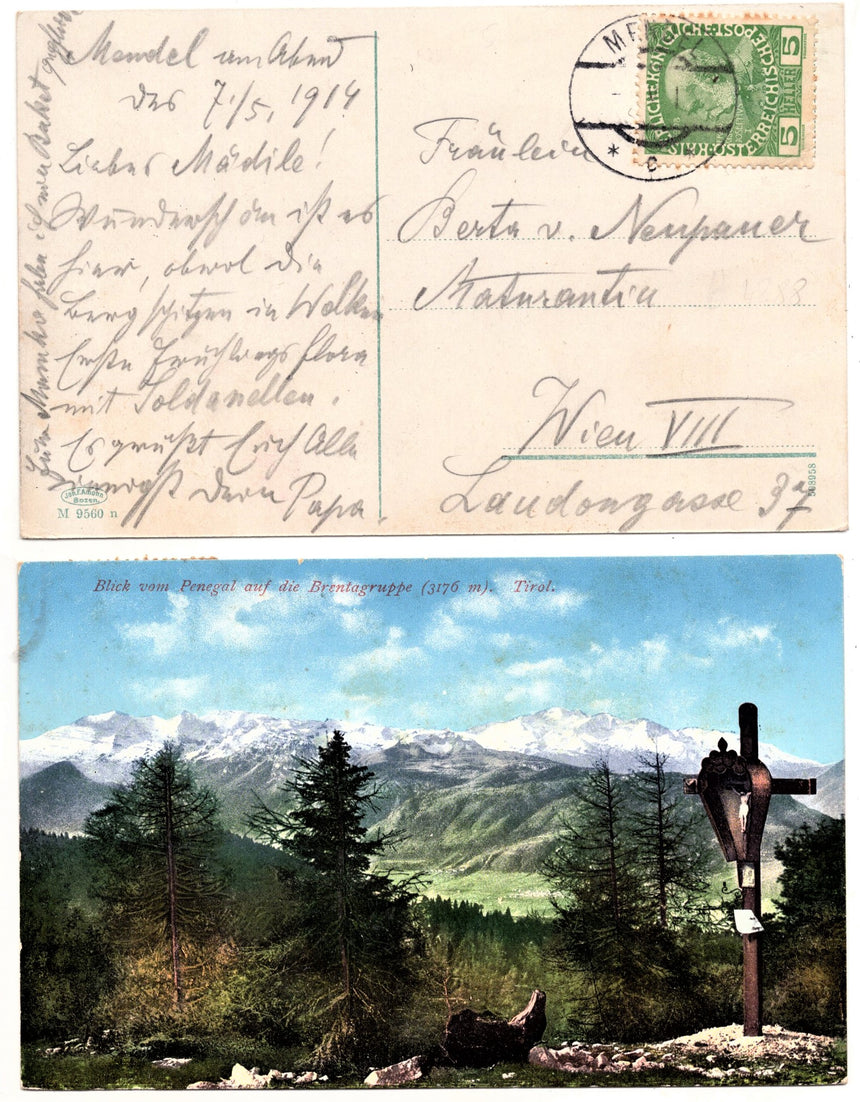 Mendel am Abend
des 7./5. 1914
Liebes Mädile!
Wunderschön ist es
hier, obwol die
Bergspitzen in Wolken
Erste Frühlingsflora
mit Soldanellen.
Es grüßt Euch Alle
innigst Dein Papa.
Joh. F. Amonn
Bozen.
M 9560 n
5 HELLER 5
KAIS. KÖNIGLICHE ÖSTERREICHISCHE POST
* c *
Fräulein
Berta v. Neupauer
Maturantin
Wien VIII
Laudongasse 37
Blick vom Penegal auf die Brentagruppe (3176 m). Tirol.